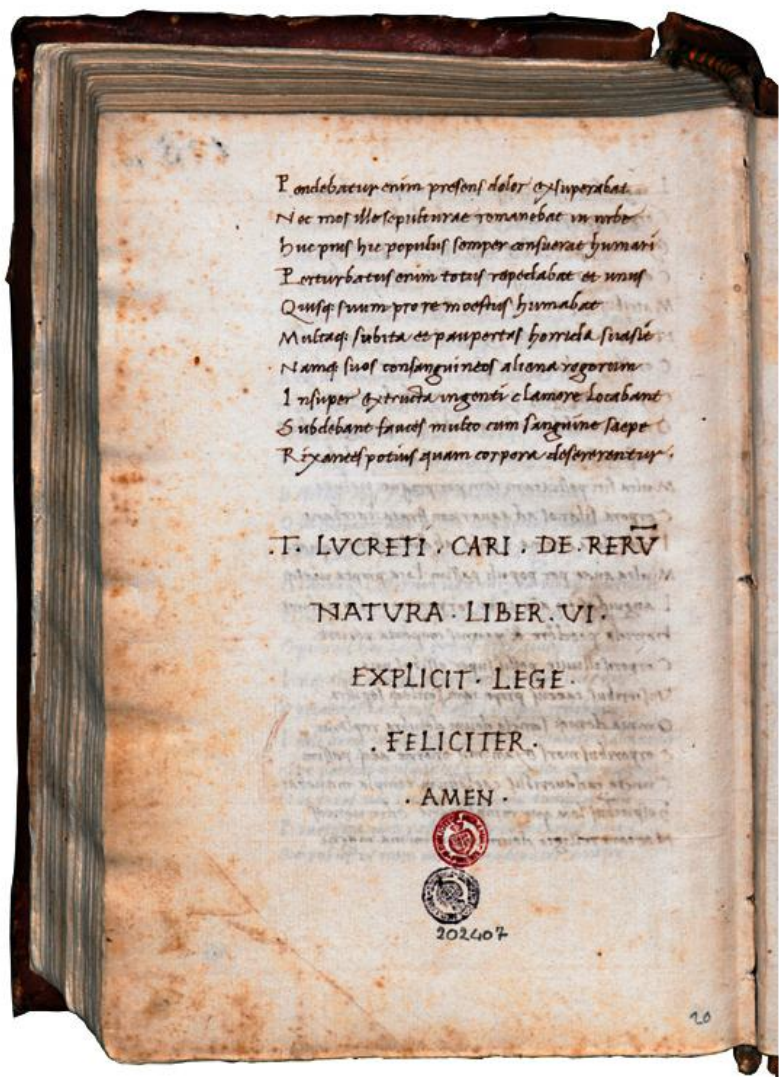 Pendebatur enim presens dolor exsuperabat
Nec mos ille sepulturae remanebat in urbe
huc pius hic populus semper consuerat humari
Perturbatus enim totus repedabat et unus
Quisq; suum pro re moestus humabat
Multaq; subita et paupertas horrida suasit
Namq; suos consanguineos aliena rogorum
Insuper extructa ingenti clamore locabant
Subdebant fauces multo cum sanguine saepe
Rixantes potius quam corpora desererentur.
.T. LVCRETI . CARI . DE . RERV̅
NATVRA . LIBER . VI .
EXPLICIT . LEGE .
. FELICITER .
. AMEN .
202407
20